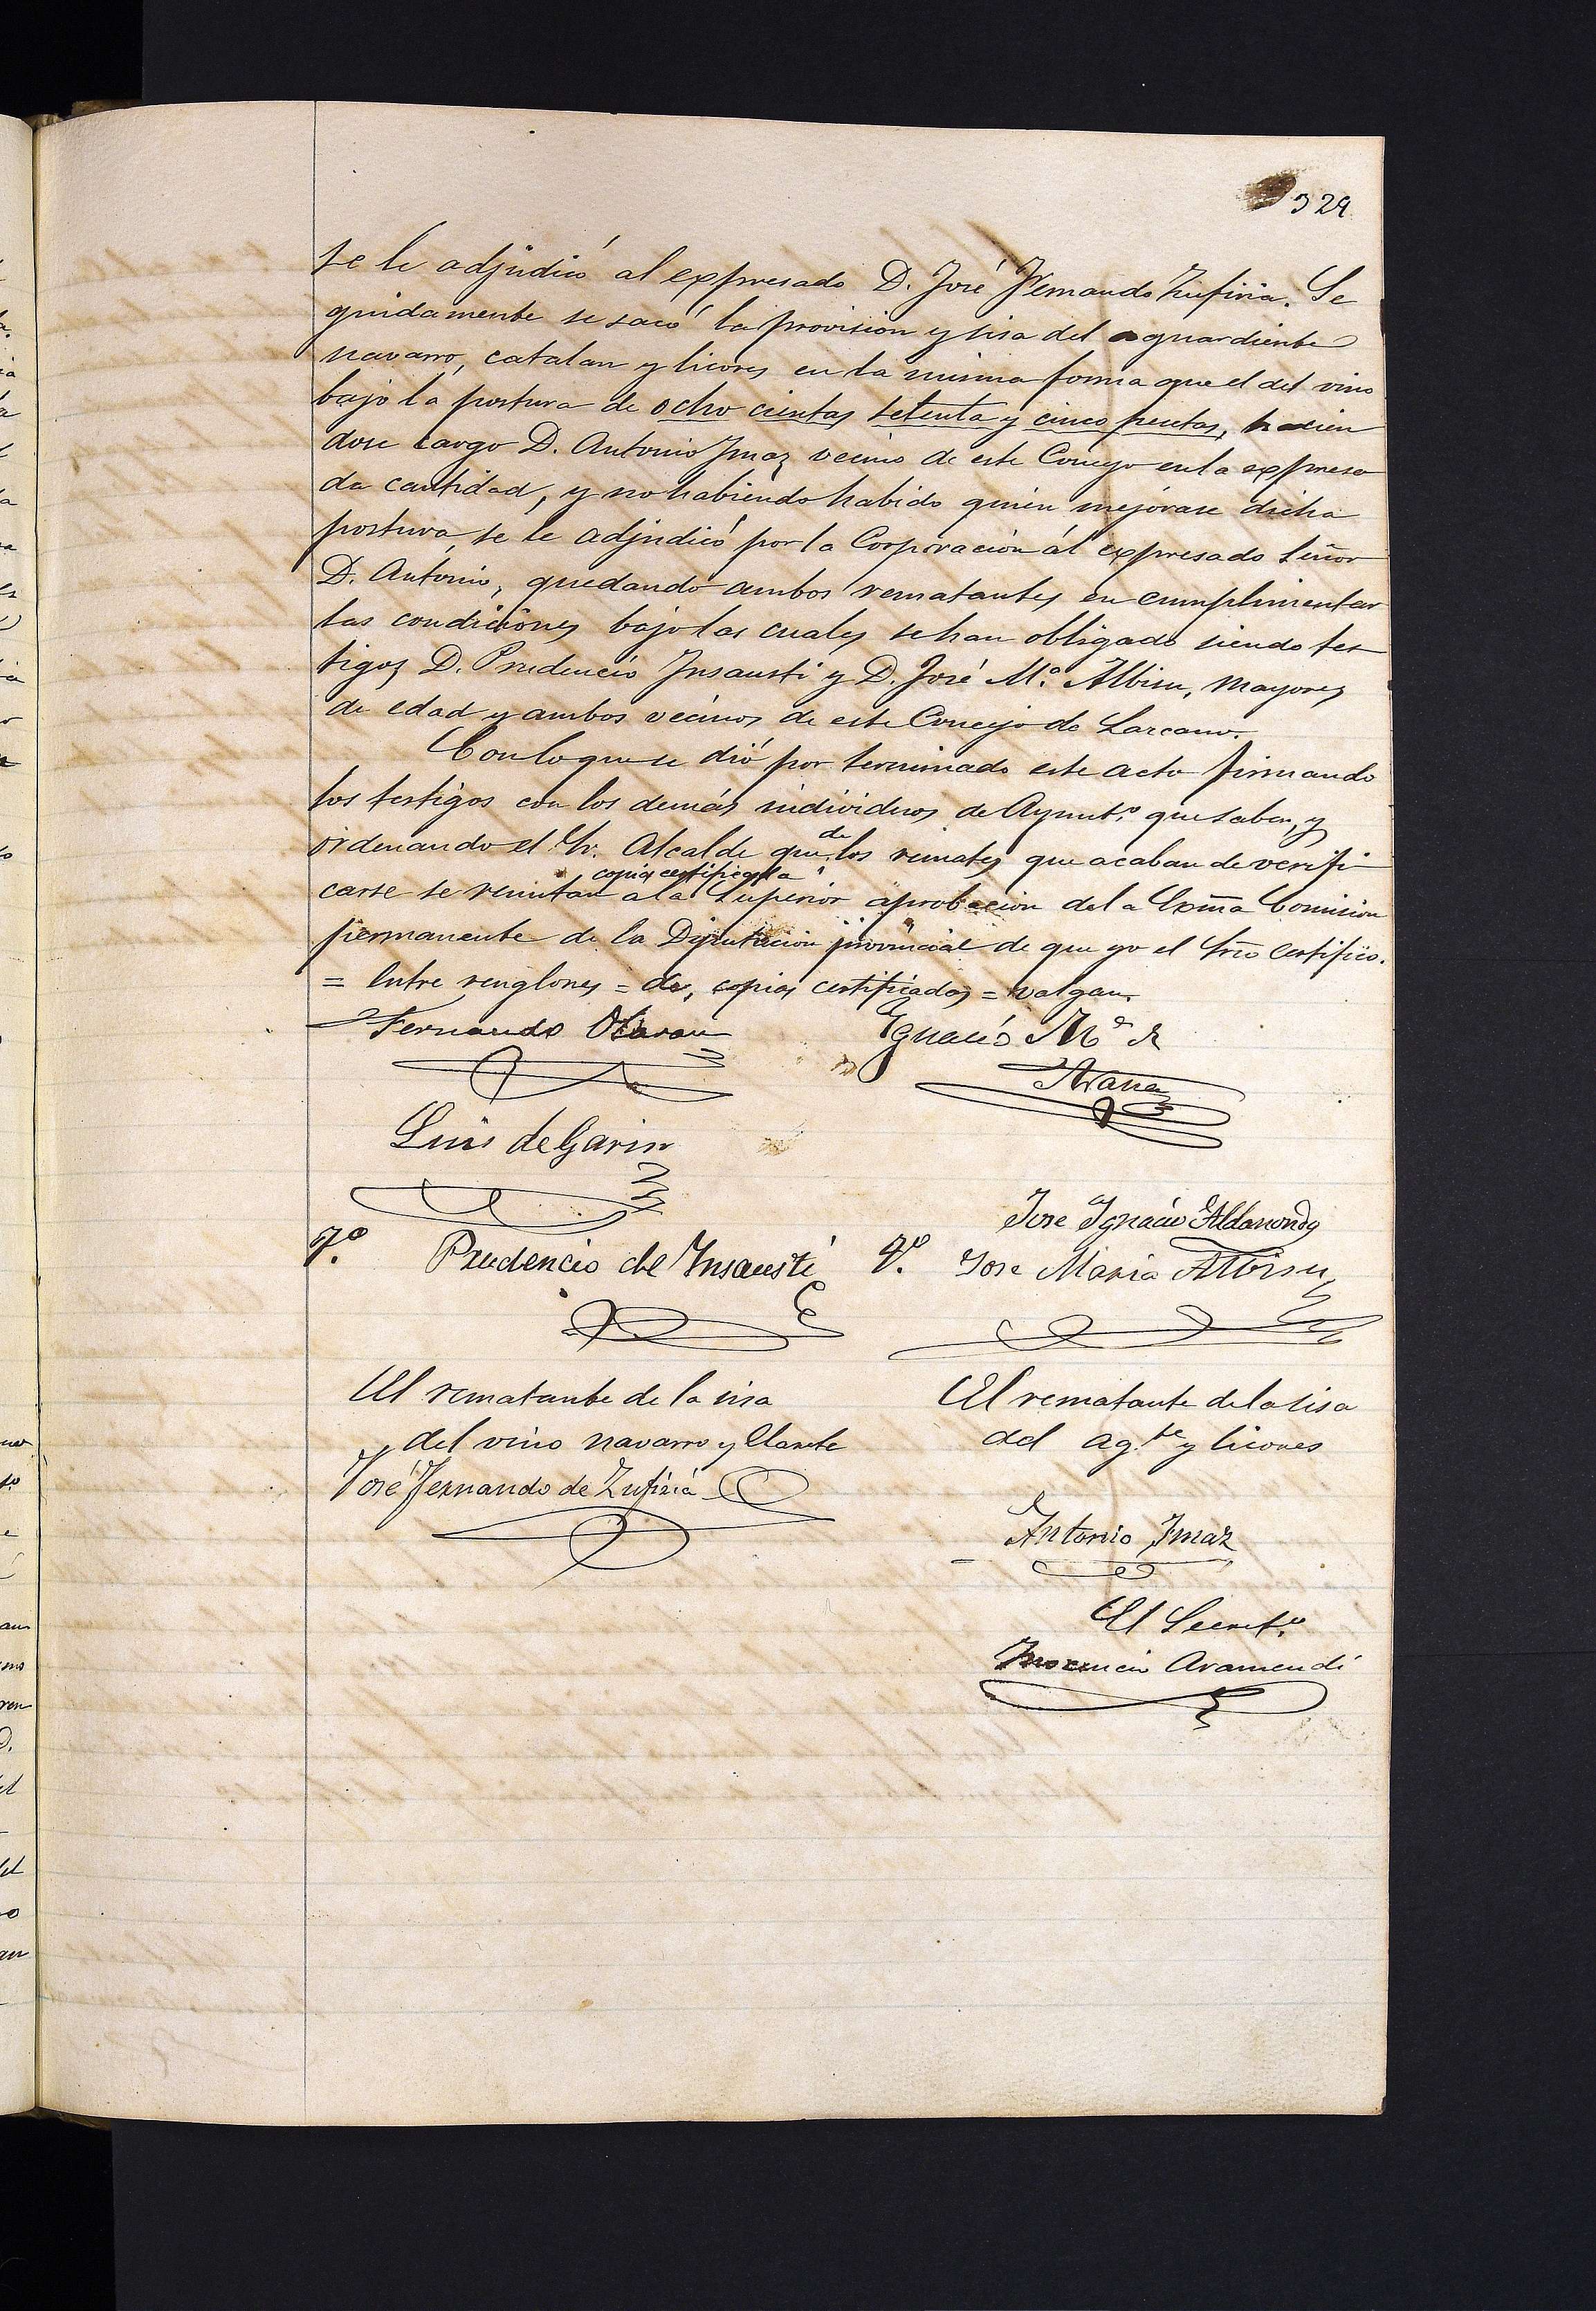 329
se le adjudicó al expresado D. José Fernando Zufiria. Se
guidamente se sacó la provision y sisa del aguardiente
navarro, catalan y licores en la misma forma que el del vino
bajo la postura de ocho cientas setenta y cinco pesetas, hacien
dose cargo D. Antonio Imaz vecino de este Concejo en la expresa
da cantidad, y no habiendo habido quien mejórase dicha
postura, se le adjudicó por la Corporacion al expresado Señor
D. Antonio, quedando ambos rematantes en cumplimentar
las condiciones bajo las cuales se han obligado siendo tes
tigos D. Prudencio Insausti y D. José Mª. Albisu, mayores
de edad y ambos vecinos de este Concejo de Lazcano.
Con lo que se dió por terminado este acto firmando
los testigos con los demás individuos de Ayuntº. que saben, y
ordenando el Sr. Alcalde que de los remates que acaban de verifi
carse se remitan copias certificadas a la Superior aprobacion de la Exma Comision
permanente de la Diputacion provincial de que yo el Srio certifico.
= Entre renglones = de, copias certificadas = valgan.
Fernando Otaran Ignacio Mª de
Arana
Luis de Garin
Jose Ignacio Aldanondo
Tº. Prudencio de Insausti Tº. Jose Maria Albisu
El rematante de la sisa El rematante de la sisa
del vino navarro y Clarete del ag.te y licores
José Fernando de Zufiria
Antonio Imaz
El Secretº.
Inocencio Aramendi